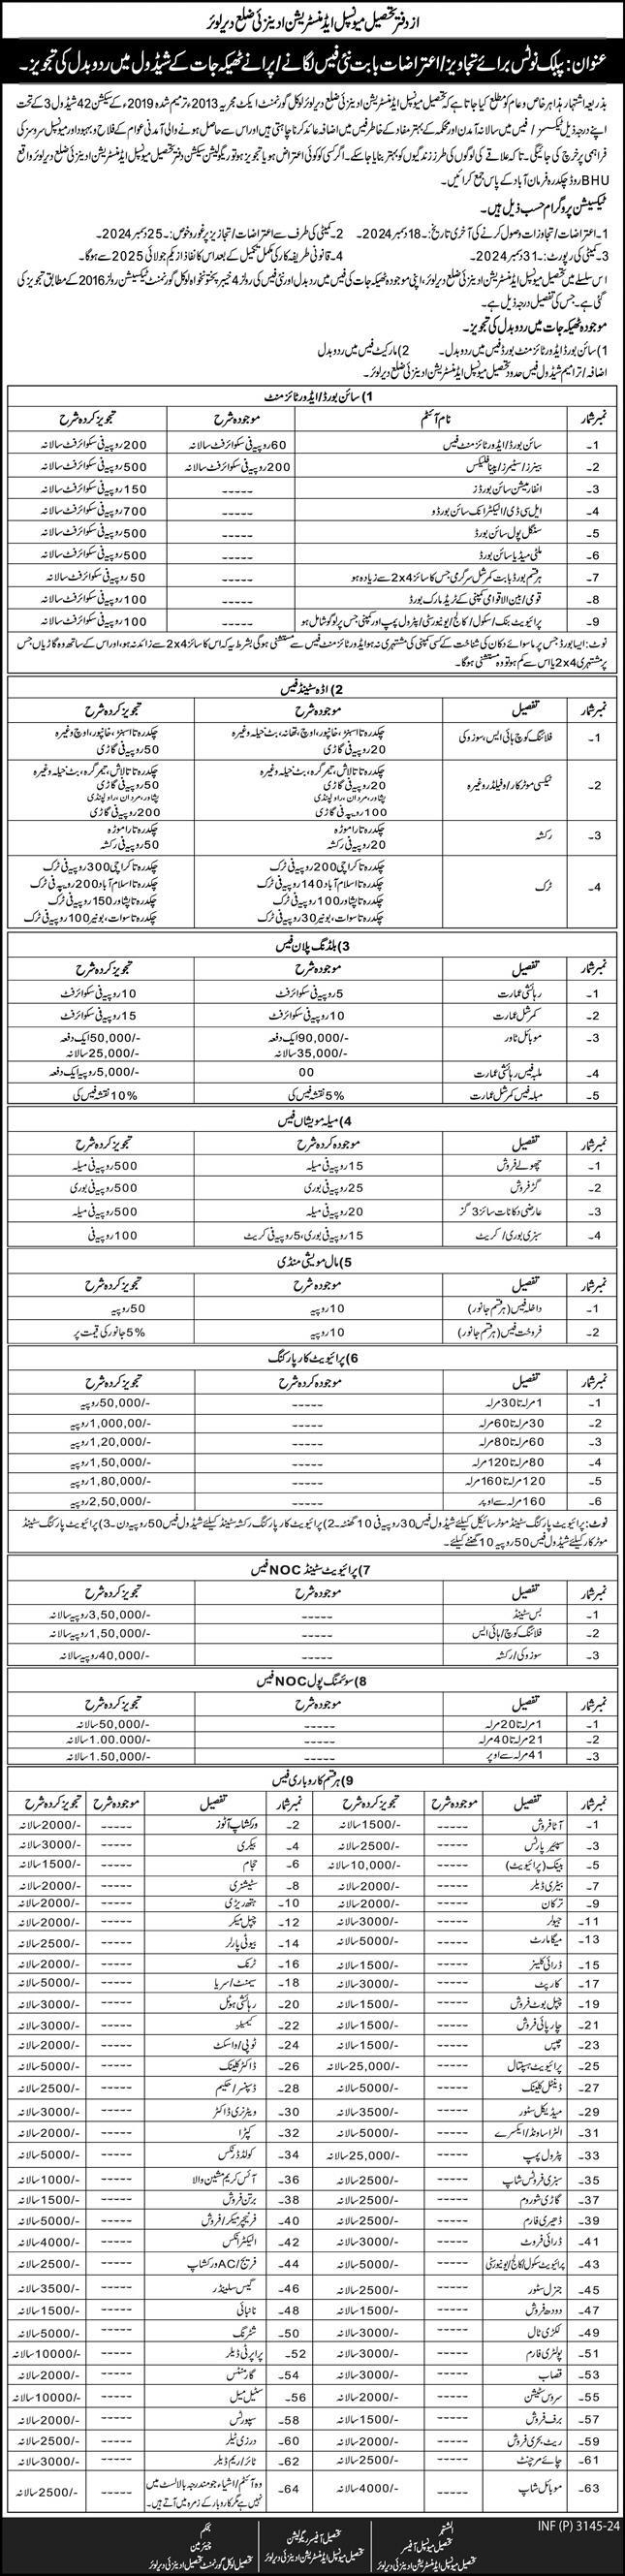 از دفتر تحصیل میونسپل ایڈمنسٹریشن ادینزئی ضلع دیر لوئر
عنوان: پبلک نوٹس برائے تجاویز/اعتراضات بابت نئی فیس لگانے/پرانے ٹھیکہ جات کے شیڈول میں ردوبدل کی تجویز۔
بذریعہ اشتہار ہذا ہر خاص و عام کو مطلع کیا جاتا ہے کہ تحصیل میونسپل ایڈمنسٹریشن ادینزئی ضلع دیر لوئر لوکل گورنمنٹ ایکٹ مجریہ 2013ء ترمیم شدہ 2019ء کے سیکشن 42 شیڈول 3 کے تحت
اپنے درجہ ذیل ٹیکسز/فیس میں سالانہ آمدن اور محکمہ کے بہتر مفاد کے خاطر فیس میں اضافہ عائد کرنا چاہتی ہیں اور اس سے حاصل ہونے والی آمدنی عوام کے فلاح و بہبود اور میونسپل سروسز کی
فراہمی پر خرچ کی جائیگی۔ تاکہ علاقے کی لوگوں کی طرز زندگیوں کو بہتر بنایا جا سکے۔ اگر کسی کو کوئی اعتراض ہو یا تجویز ہو تو ریگولیشن سیکشن دفتر تحصیل میونسپل ایڈمنسٹریشن ادینزئی ضلع دیر لوئر واقع
BHU روڈ چکدرہ فرمان آباد کے پاس جمع کرائیں۔
ٹیکسیشن پروگرام حسب ذیل ہیں۔
1۔ اعتراضات/تجاوزات وصول کرنے کی آخری تاریخ:۔ 18 دسمبر 2024۔ 2۔ کمیٹی کی طرف سے اعتراضات/تجاویز پر غور و خوض:۔ 25 دسمبر 2024۔
3۔ کمیٹی کی رپورٹ:۔ 31 دسمبر 2024۔ 4۔ قانونی طریقہ کار کی مکمل تکمیل کے بعد اس کا نفاذ از یکم جولائی 2025 سے ہوگا۔
اس سلسلے میں تحصیل میونسپل ایڈمنسٹریشن ادینزئی ضلع دیر لوئر، اپنی موجودہ ٹھیکہ جات کی فیس میں ردوبدل اور نئی فیس کی رولز 4 خیبر پختونخواہ لوکل گورنمنٹ ٹیکسیشن رولز 2016 کے مطابق تجویز کی
گئی ہے۔ جس کی تفصیل درجہ ذیل ہے۔
موجودہ ٹھیکہ جات میں ردوبدل کی تجویز۔
1) سائن بورڈ ایڈورٹائزمنٹ بورڈ فیس میں ردوبدل۔ 2) مارکیٹ فیس میں ردوبدل
اضافہ/ترامیم شیڈول فیس حدود تحصیل میونسپل ایڈمنسٹریشن ادینزئی ضلع دیر لوئر۔
1) سائن بورڈ/ایڈورٹائزمنٹ
نمبر شمار نام آئٹم موجودہ شرح تجویز کردہ شرح
1۔ سائن بورڈ/ایڈورٹائزمنٹ فیس 60 روپیہ فی سکوائر فٹ سالانہ 200 روپیہ فی سکوائر فٹ سالانہ
2۔ بینرز/سٹیمرز/پینا فلیکس 200 روپیہ فی سکوائر فٹ سالانہ 500 روپیہ فی سکوائر فٹ سالانہ
3۔ انفارمیشن سائن بورڈز ----- 150 روپیہ فی سکوائر فٹ سالانہ
4۔ ایل سی ڈی/الیکٹرانک سائن بورڈو ----- 700 روپیہ فی سکوائر فٹ سالانہ
5۔ سنگل پول سائن بورڈ ----- 500 روپیہ فی سکوائر فٹ سالانہ
6۔ ملٹی میڈیا سائن بورڈ ----- 500 روپیہ فی سکوائر فٹ سالانہ
7۔ ہر قسم بورڈ بابت کمرشل سرگرمی جس کا سائز 2x4 سے زیادہ ہو ----- 50 روپیہ فی سکوائر فٹ سالانہ
8۔ قومی/بین الاقوامی کمپنی کے ٹریڈ مارک بورڈ ----- 100 روپیہ فی سکوائر فٹ سالانہ
9۔ پرائیویٹ بنک/سکول/کالج/یونیورسٹی/پٹرول پمپ اور کمپنی جس پر لوگو شامل ہو ----- 100 روپیہ فی سکوائر فٹ سالانہ
نوٹ: ایسا بورڈ جس پر ماسوائے دکان کی شناخت کے کسی کمپنی کی مشتہری نہ ہو ایڈورٹائزمنٹ فیس سے مستثنٰی ہوگی بشرط یہ کہ اس کا سائز 2x4 سے زائد نہ ہو، اور اس کے ساتھ وہ گاڑیاں جس
پر مشتہری 2x4 یا اس سے کم ہو تو وہ مستثنٰی ہوگا۔
2) اڈہ سٹینڈ فیس
نمبر شمار تفصیل موجودہ شرح تجویز کردہ شرح
1۔ فلائنگ کوچ ہائی ایس، سوزوکی چکدرہ تا اسبنڑ، خانپور، اوچ، تھانہ، بٹ خیلہ وغیرہ چکدرہ تا اسبنڑ، خانپور، اوچ وغیرہ
20 روپیہ فی گاڑی 50 روپیہ فی گاڑی
2۔ ٹیکسی موٹر کار/فیلڈر وغیرہ چکدرہ تا تالاش، تیمرگرہ، بٹ خیلہ وغیرہ چکدرہ تا تالاش، تیمرگرہ، بٹ خیلہ وغیرہ
20 روپیہ فی گاڑی 50 روپیہ فی گاڑی
پشاور، مردان، راولپنڈی پشاور، مردان، راولپنڈی
100 روپیہ فی گاڑی 200 روپیہ فی گاڑی
3۔ رکشہ چکدرہ تا راموڑہ چکدرہ تا راموڑہ
20 روپیہ فی رکشہ 50 روپیہ فی رکشہ
4۔ ٹرک چکدرہ تا کراچی 200 روپیہ فی ٹرک چکدرہ تا کراچی 300 روپیہ فی ٹرک
چکدرہ تا اسلام آباد 140 روپیہ فی ٹرک چکدرہ تا اسلام آباد 200 روپیہ فی ٹرک
چکدرہ تا پشاور 100 روپیہ فی ٹرک چکدرہ تا پشاور 150 روپیہ فی ٹرک
چکدرہ تا سوات، بونیر 30 روپیہ فی ٹرک چکدرہ تا سوات، بونیر 100 روپیہ فی ٹرک
3) بلڈنگ پلان فیس
نمبر شمار تفصیل موجودہ شرح تجویز کردہ شرح
1۔ رہائشی عمارت 5 روپیہ فی سکوائر فٹ 10 روپیہ فی سکوائر فٹ
2۔ کمرشل عمارت 10 روپیہ فی سکوائر فٹ 15 روپیہ فی سکوائر فٹ
3۔ موبائل ٹاور 90,000/- ایک دفعہ 50,000/- ایک دفعہ
35,000/- سالانہ 25,000/- سالانہ
4۔ ملبہ فیس رہائشی عمارت 00 5,000/- روپیہ ایک دفعہ
5۔ میلہ فیس کمرشل عمارت 5% نقشہ فیس کی 10% نقشہ فیس کی
4) میلہ مویشاں فیس
نمبر شمار تفصیل موجودہ کردہ شرح تجویز کردہ شرح
1۔ چھولے فروش 15 روپیہ فی میلہ 500 روپیہ فی میلہ
2۔ گڑ فروش 25 روپیہ فی بوری 500 روپیہ فی بوری
3۔ عارضی دکانات سائز 3 گز 20 روپیہ فی میلہ 500 روپیہ فی میلہ
4۔ سبزی بوری/کریٹ 15 روپیہ فی بوری، 5 روپیہ فی کریٹ 100 روپیہ فی
5) مال مویشی منڈی
نمبر شمار تفصیل موجودہ شرح تجویز کردہ شرح
1۔ داخلہ فیس (ہر قسم جانور) 10 روپیہ 50 روپیہ
2۔ فروخت فیس (ہر قسم جانور) 10 روپیہ 5% جانور کی قیمت پر
6) پرائیویٹ کار پارکنگ
نمبر شمار تفصیل موجودہ کردہ شرح تجویز کردہ شرح
1۔ 1 مرلہ تا 30 مرلہ ----- 50,000/- روپیہ
2۔ 30 مرلہ تا 60 مرلہ ----- 1,000,00/- روپیہ
3۔ 60 مرلہ تا 80 مرلہ ----- 1,20,000/- روپیہ
4۔ 80 مرلہ تا 120 مرلہ ----- 1,50,000/- روپیہ
5۔ 120 مرلہ تا 160 مرلہ ----- 1,80,000/- روپیہ
6۔ 160 مرلہ سے اوپر ----- 2,50,000/- روپیہ
نوٹ: پرائیویٹ پارکنگ سٹینڈ موٹر سائیکل کیلئے شیڈول فیس 30 روپیہ فی 10 گھنٹہ۔ 2) پرائیویٹ کار پارکنگ رکشہ سٹینڈ کیلئے شیڈول فیس 50 روپیہ دن۔ 3) پرائیویٹ پارکنگ سٹینڈ
موٹر کار کیلئے شیڈول فیس 50 روپیہ 10 گھنٹے کیلئے۔
7) پرائیویٹ سٹینڈ NOC فیس
نمبر شمار تفصیل موجودہ شرح تجویز کردہ شرح
1۔ بس سٹینڈ ----- 3,50,000/- روپیہ سالانہ
2۔ فلائنگ کوچ/ہائی ایس ----- 1,50,000/- روپیہ سالانہ
3۔ سوزوکی/رکشہ ----- 40,000/- روپیہ سالانہ
8) سوئمنگ پول NOC فیس
نمبر شمار تفصیل موجودہ شرح تجویز کردہ شرح
1۔ 1 مرلہ تا 20 مرلہ ----- 50,000/- سالانہ
2۔ 21 مرلہ تا 40 مرلہ ----- 1.00.000/- سالانہ
3۔ 41 مرلہ سے اوپر ----- 1.50,000/- سالانہ
9) ہر قسم کاروباری فیس
نمبر شمار تفصیل موجودہ شرح تجویز کردہ شرح نمبر شمار تفصیل موجودہ شرح تجویز کردہ شرح
1۔ آٹا فروش ----- 1500/- سالانہ 2۔ ورکشاپ آٹوز ----- 2000/- سالانہ
3۔ سپیئر پارٹس ----- 2500/- سالانہ 4۔ بیکری ----- 3000/- سالانہ
5۔ بینک (پرائیویٹ) ----- 10,000/- سالانہ 6۔ حجام ----- 1500/- سالانہ
7۔ بیٹری ڈیلر ----- 2000/- سالانہ 8۔ سٹیشنری ----- 2000/- سالانہ
9۔ ترکان ----- 2000/- سالانہ 10۔ ہتھ ریڑی ----- 2000/- سالانہ
11۔ جیولر ----- 3000/- سالانہ 12۔ چپل میکر ----- 2000/- سالانہ
13۔ میگا مارٹ ----- 5000/- سالانہ 14۔ بیوٹی پارلر ----- 2500/- سالانہ
15۔ ڈرائی کلینر ----- 1500/- سالانہ 16۔ ٹرنک ----- 2000/- سالانہ
17۔ کارپٹ ----- 3000/- سالانہ 18۔ سیمنٹ/سریا ----- 5000/- سالانہ
19۔ چپل بوٹ فروش ----- 1500/- سالانہ 20۔ رہائشی ہوٹل ----- 3000/- سالانہ
21۔ چارپائی فروش ----- 1500/- سالانہ 22۔ کیمیکلز ----- 3000/- سالانہ
23۔ چپس ----- 1500/- سالانہ 24۔ ٹوپی/واسکٹ ----- 2000/- سالانہ
25۔ پرائیویٹ ہسپتال ----- 25,000/- سالانہ 26۔ ڈاکٹر کلینک ----- 5000/- سالانہ
27۔ ڈینٹل کلینک ----- 5000/- سالانہ 28۔ ڈسپنسر/حکیم ----- 2500/- سالانہ
29۔ میڈیکل سٹور ----- 3500/- سالانہ 30۔ ویٹرنری ڈاکٹر ----- 3000/- سالانہ
31۔ الٹراساونڈ/ایکسرے ----- 5000/- سالانہ 32۔ کپڑا ----- 2000/- سالانہ
33۔ پٹرول پمپ ----- 25,000/- سالانہ 34۔ کولڈ ڈرنکس ----- 5000/- سالانہ
35۔ سبزی فروٹس شاپ ----- 2500/- سالانہ 36۔ آئس کریم مشین والا ----- 1000/- سالانہ
37۔ گاڑی شوروم ----- 2500/- سالانہ 38۔ برتن فروش ----- 1500/- سالانہ
39۔ ڈھیری فارم ----- 2500/- سالانہ 40۔ فرنیچر میکر/فروش ----- 5000/- سالانہ
41۔ ڈرائی فروٹ ----- 3000/- سالانہ 42۔ الیکٹرانکس ----- 4000/- سالانہ
43۔ پرائیویٹ سکول/کالج/یونیورسٹی ----- 5000/- سالانہ 44۔ فریج/AC ورکشاپ ----- 2500/- سالانہ
45۔ جنرل سٹور ----- 2500/- سالانہ 46۔ گیس سلینڈر ----- 3500/- سالانہ
47۔ دودھ فروش ----- 1500/- سالانہ 48۔ نانبائی ----- 1500/- سالانہ
49۔ لکڑی ٹال ----- 3000/- سالانہ 50۔ شٹرنگ ----- 5000/- سالانہ
51۔ پولٹری فارم ----- 3000/- سالانہ 52۔ پراپرٹی ڈیلر ----- 10000/- سالانہ
53۔ قصاب ----- 3000/- سالانہ 54۔ گارمنٹس ----- 2000/- سالانہ
55۔ سروس سٹیشن ----- 2000/- سالانہ 56۔ سٹیل میل ----- 10000/- سالانہ
57۔ برف فروش ----- 1500/- سالانہ 58۔ سپورٹس ----- 2000/- سالانہ
59۔ ریت بجری فروش ----- 2000/- سالانہ 60۔ درزی ٹیلر ----- 2500/- سالانہ
61۔ چائے مرچنٹ ----- 2500/- سالانہ 62۔ ٹائر/ریم ڈیلر ----- 3000/- سالانہ
63۔ موبائل شاپ ----- 4000/- سالانہ 64۔ وہ آئٹم/اشیاء جو مندرجہ بالا لسٹ میں نہیں ہے مگر کاروبار کے زمرہ میں آتے ہیں۔ ----- 2500/- سالانہ
INF (P) 3145-24
المشتہر
تحصیل میونسپل آفیسر
تحصیل میونسپل ایڈمنسٹریشن ادینزئی دیر لوئر
تحصیل آفیسر ریگولیشن
تحصیل میونسپل ایڈمنسٹریشن ادینزئی دیر لوئر
بحکم
چیئرمین
تحصیل لوکل گورنمنٹ تحصیل ادینزئی دیر لوئر